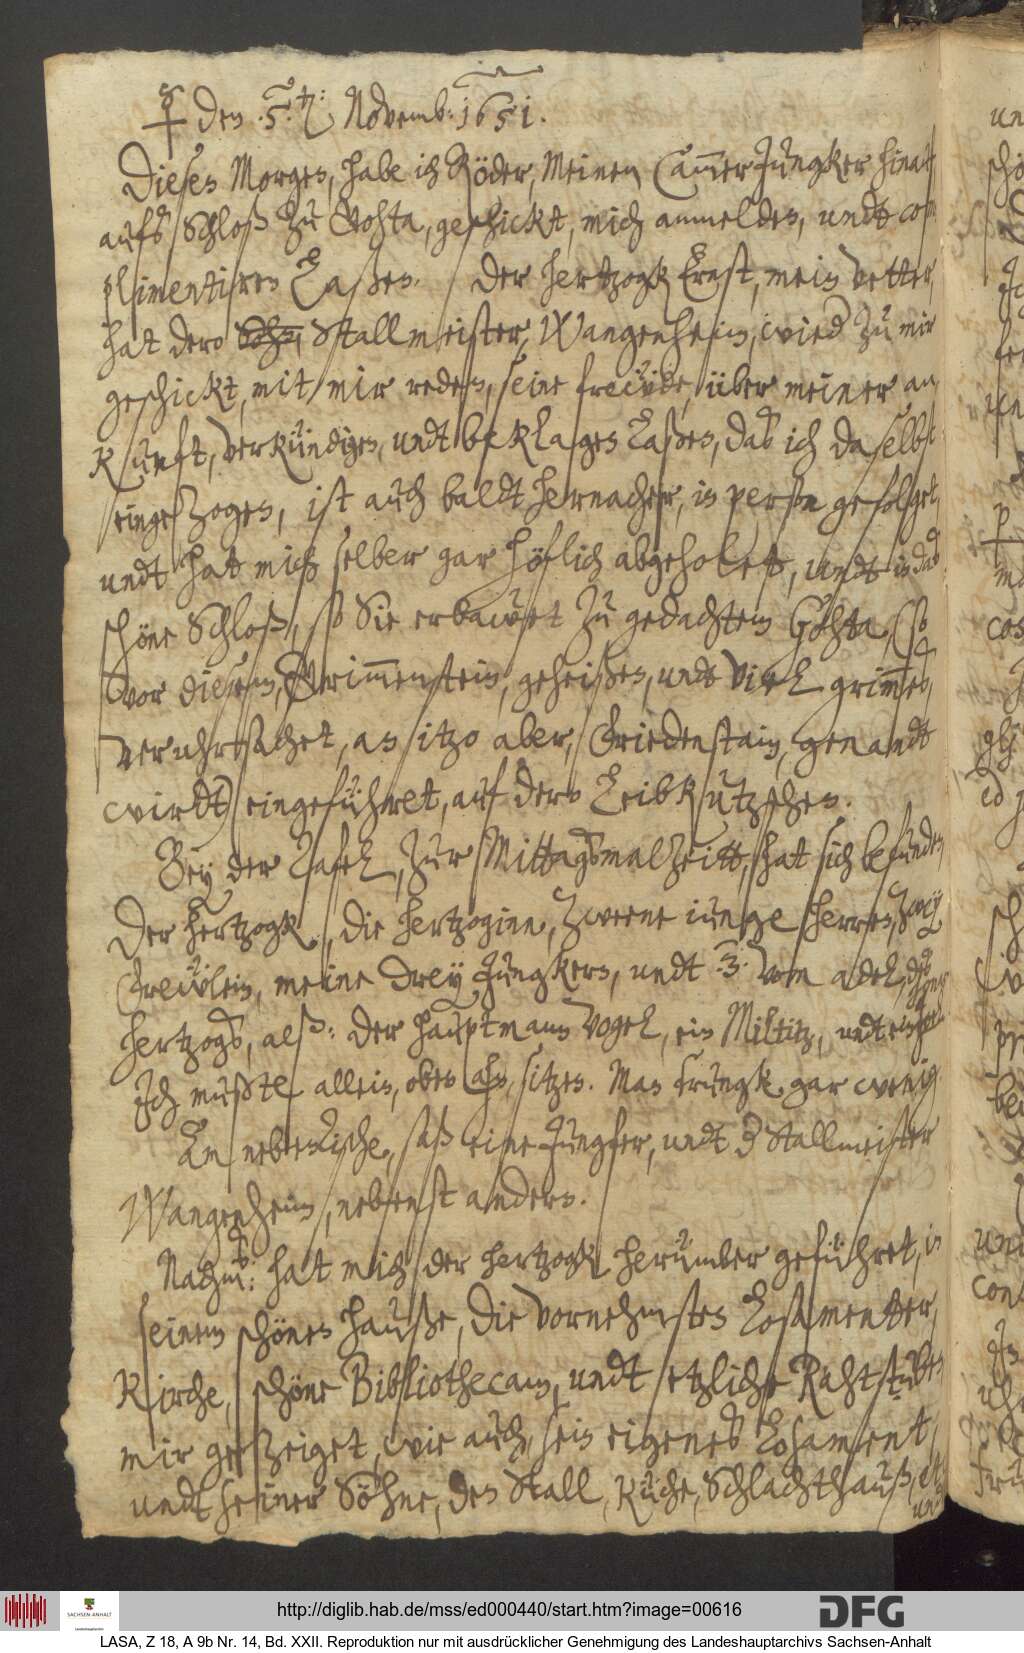 ☿ den .5.t: Novemb: 1651.
Dieses Morges, habe ich Röder, Meinen CammerJungker hinauf
aufs Schloß zu Gohta, geschickt, mich anmelden, undt com¬
plimentiren laßen. Der hertzogk Ernst, mein vetter,
hat dero Stallmeister, Wangenheim, wied zu mir
geschickt, mit mir reden, seine frewde, über meiner an¬
kunft, verkündigen, undt beklagen laßen, das ich daselbst
eingezogen, ist auch baldt hernacher, in person gefolget,
undt hat mich selber gar höflich abgeholett, undt in das
schöne Schloß, so Sie erbawet zu gedachtem Gohta, (so
vor diesem, Grimmenstein, geheißen, undt viel grimmes,
veruhrsachet, an itzo aber, Friedenstain, genandt
wirdt) eingeführet, auf dero Leibkutzschen.
Bey der Tafel, zur Mittagsmalzeitt, hat sich befunden
Der hertzogk, die hertzoginn, zweene iunge herren, zwey
Frewlein, meine drey Jungkern, undt .3. vom adel, des
hertzogs, alß: der hauptmann Vogel, ein Miltitz, undt ein
Ich mußte allein, oben ahn, sitzen. Man trungk gar wenig.
Am nebentische, saß eine Jungfer, undt d Stallmeister
Wangenheim, nebenst andern.
Nachm: hat mich der hertzogk herumber geführet, in
seinem schönen hause, die vornehmsten Losamenter,
Kirche, schöne Bibliothecam, undt etzliche Rahtstuben
mir gezeiget, wie auch, sein eigenes Losament,
undt seiner Söhne, den Stall, Küche, Schlachthauß, etc.
und
http://diglib.hab.de/mss/ed000440/start.htm?image=00616
DFG
SACHSEN-ANHALT
LASA, Z 18, A 9b Nr. 14, Bd. XXII. Reproduktion nur mit ausdrücklicher Genehmigung des Landeshauptarchivs Sachsen-Anhalt